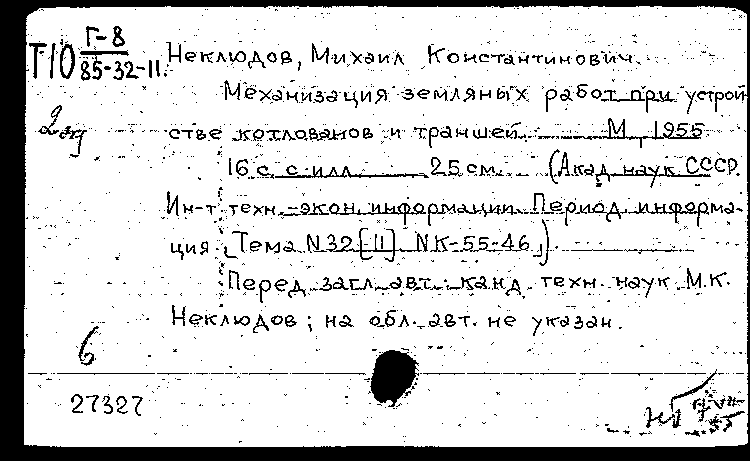 Г-8
Т10 85-32-11.
Неклюдов, Михаил Константинович.
Механизация земляных работ при устрой-
стве котлованов и траншей. М, 1955
16 с. с илл. 25 см. (Акад. наук СССР.
Ин-т техн.-экон. информации. Период. информа-
ция. Тема N32[II]. NК-55-46.)
Перед загл. авт.: канд. техн. наук М.К.
Неклюдов; на обл. авт. не указан.
2 эк
6
27327